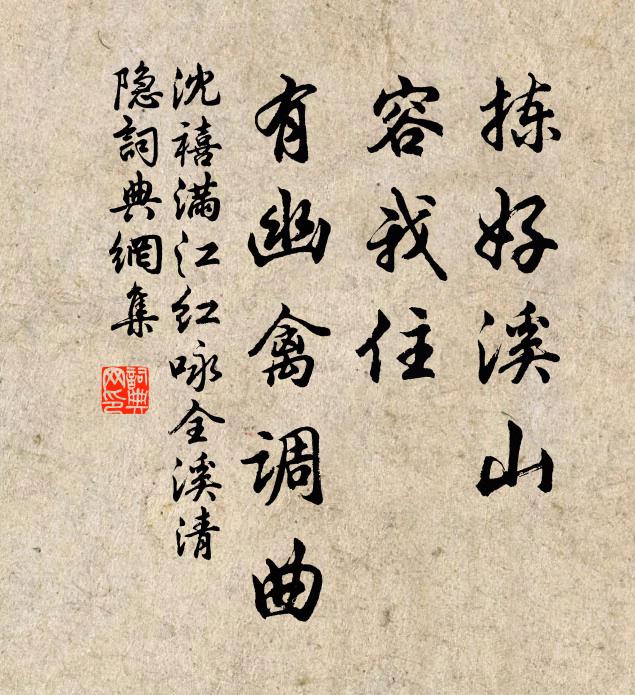 拣好溪山
容我住
有幽禽调曲
沈禧满江红咏全溪清
隐詞典網集
詞典网印